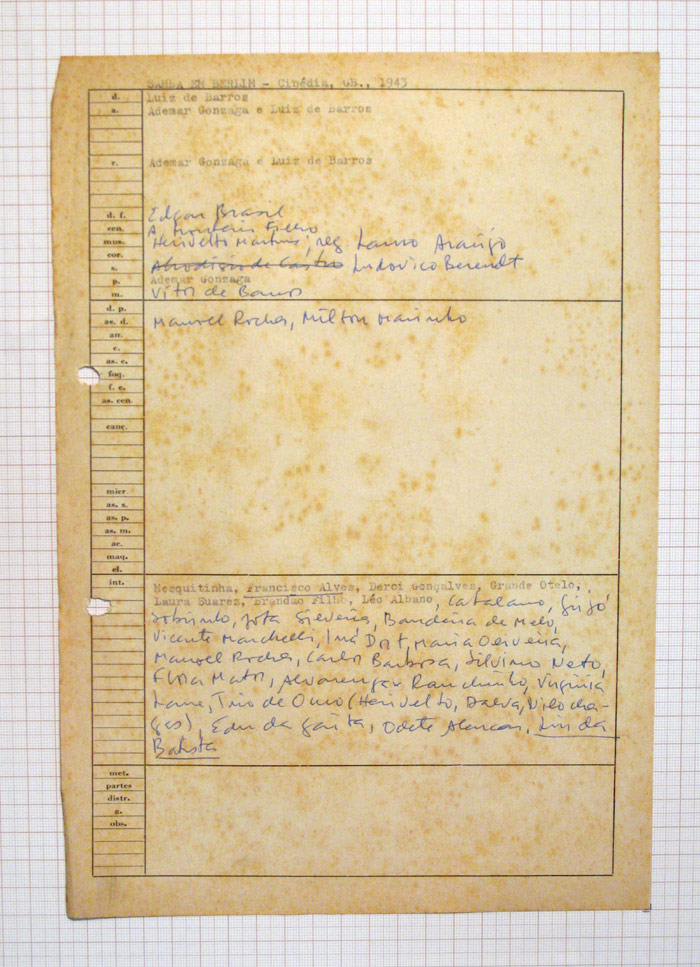 SAMBA EM BERLIM - Cinédia, GB., 1943
d. Luiz de Barros
a. Ademar Gonzaga e Luiz de Barros
r. Ademar Gonzaga e Luiz de Barros
d. f. Edgar Brasil
cen. A. Monteiro Filho
mus. Herivelto Martins; reg Lauro Araújo
cor.
s. Afrodísio de Castro Ludovico Berendt
p. Ademar Gonzaga
m. Vitor de Barros
d. p.
as. d. Manoel Rocha, Milton Marinho
an.
c.
as. c.
foq.
f. c.
as. cen.
canç.
micr
as. s.
as. p.
as. m.
ac.
maq.
el.
int. Mesquitinha, Francisco Alves, Derci Gonçalves, Grande Otelo,
Laura Suarez, Brandão Filho, Léo Albano, Catalano, Grijó
Sobrinho, Jota Silveira, Bandeira de Melo,
Vicente Marchelli, Iná D'or, Maria Oliveira,
Manoel Rocha, Carlos Barbosa, Silvino Neto,
Flora Matos, Alvarenga e Ranchinho, Virginia
Lane, Trio de Ouro (Herivelto, Dalva, Nilo Cha-
gas), Edu da gaita, Odete Alencar, Linda
Batista
met.
partes
distr.
g.
obs.